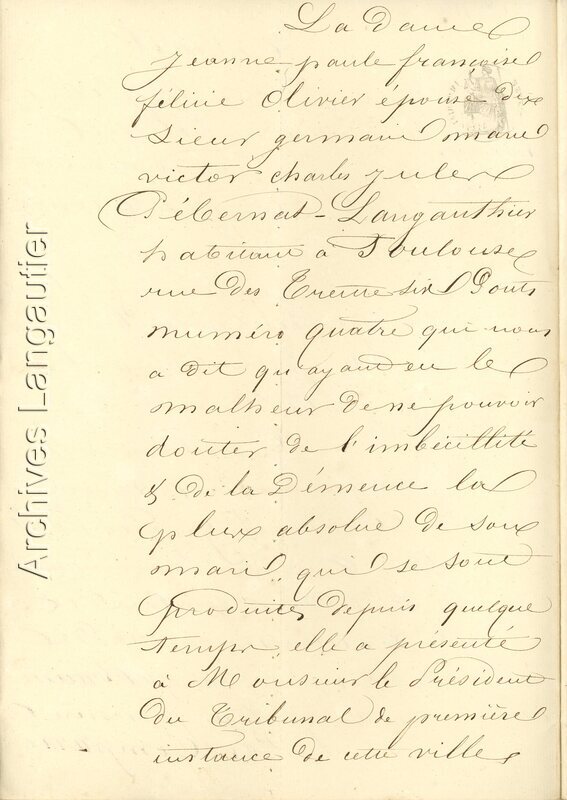 La dame
jeanne paule françoise
féline Olivier épouse du
sieur germain marie
victor charles jules
Pébernat-Langauthier
habitant à Toulouse
rue des Trente six Ponts
numéro quatre qui nous
a dit qu'ayant eu le
malheur de ne pouvoir
douter de l'imbécillité
& de la Démence la
plus absolue de son
mari qui se sont
produites depuis quelque
temps elle a présenté
à Monsieur le Président
du Tribunal de première
instance de cette ville
Archives Langautier